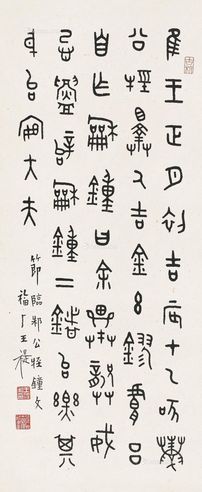 隹王正月初吉辰才乙亥鼄
公牼擇氒吉金玄鏐膚呂
自乍龢鐘曰余畢龏威
忌鑄辝龢鐘二鍺台樂其
身台宴大夫
節臨邾公牼鐘文
福厂王禔